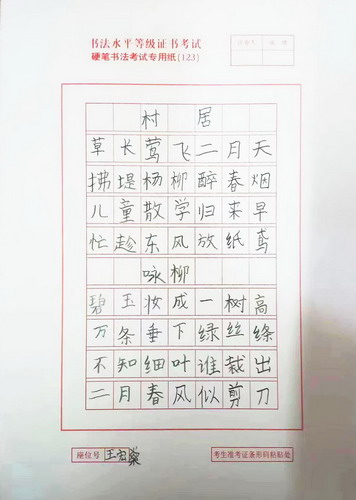 书法水平等级证书考试
硬笔书法考试专用纸(123)
村居
草长莺飞二月天
拂堤杨柳醉春烟
儿童散学归来早
忙趁东风放纸鸢
咏柳
碧玉妆成一树高
万条垂下绿丝绦
不知细叶谁裁出
二月春风似剪刀
座位号 王宏
考生准考证条形码粘贴处